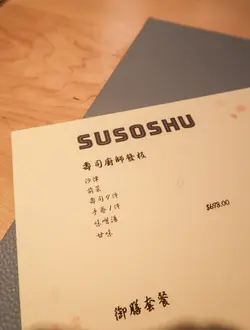 SUSOSHU
壽司廚師發板
沙律
前菜
壽司9件
手卷1件
味噌湯
甘味
$698.00
御膳套裝